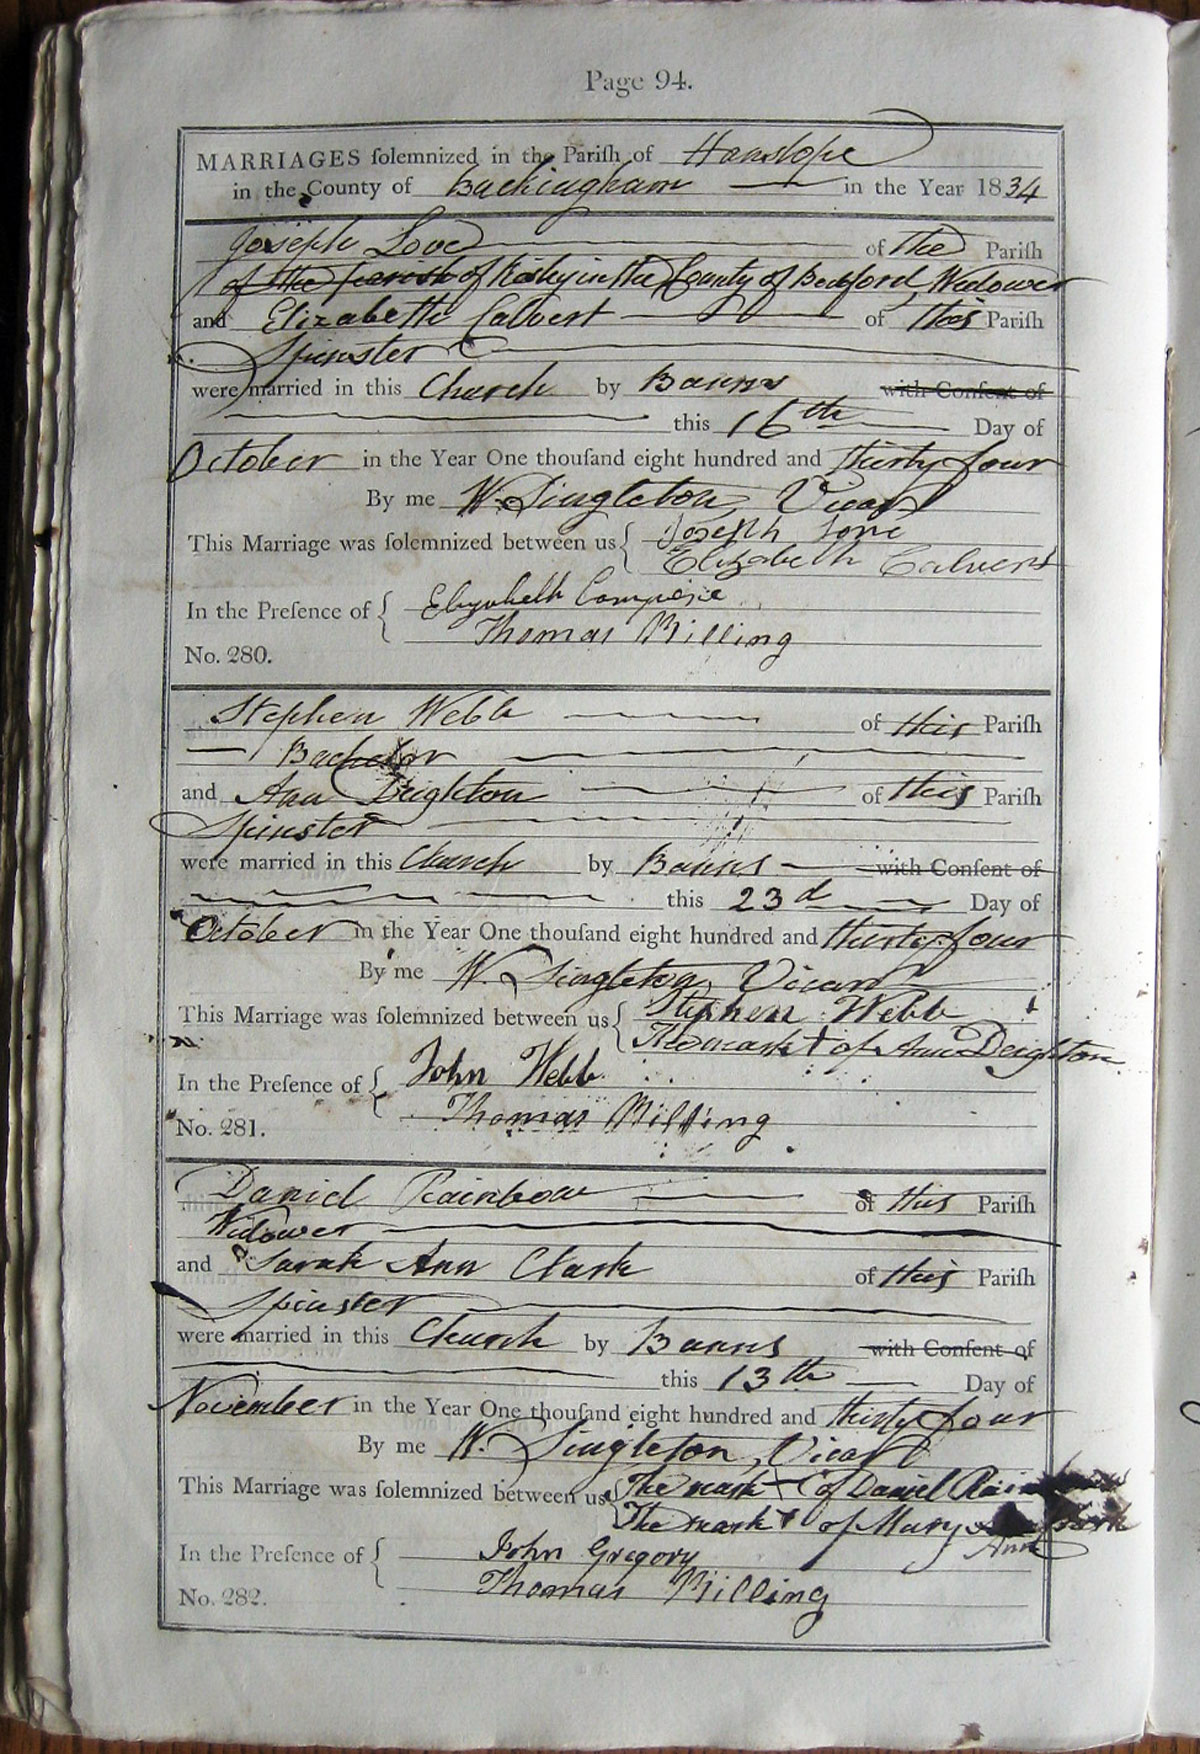 Page 94.
MARRIAGES ſolemnized in the Pariſh of Hanslope
in the County of Buckingham in the Year 1834
Joseph Love of the Pariſh
of the parish of Risley in the County of Bedford, Widower
and Elizabeth Calvert of this Pariſh
Spinster
were married in this Church by Banns with Conſent of
this 16th Day of
October in the Year One thouſand eight hundred and thirty four
By me W. Singleton, Vicar
This Marriage was ſolemnized between us { Joseph Love
Elizabeth Calvert
In the Preſence of {
Thomas Billing
No. 280.
Stephen Webb of this Pariſh
Bachelor
and Ann Deighton of this Pariſh
Spinster
were married in this Church by Banns with Conſent of
this 23d Day of
October in the Year One thouſand eight hundred and thirty four
By me W. Singleton Vicar
This Marriage was ſolemnized between us { Stephen Webb
The mark + of Ann Deighton
In the Preſence of { John Webb
Thomas Billing
No. 281.
Daniel Rainbow of this Pariſh
Widower
and Sarah Ann Clark of this Pariſh
Spinster
were married in this Church by Banns with Conſent of
this 13th Day of
November in the Year One thouſand eight hundred and thirty four
By me W. Singleton, Vicar
This Marriage was ſolemnized between us { The mark + of Daniel Rainbow
The mark + of Mary Clark
Ann
In the Preſence of { John Gregory
Thomas Billing
No. 282.